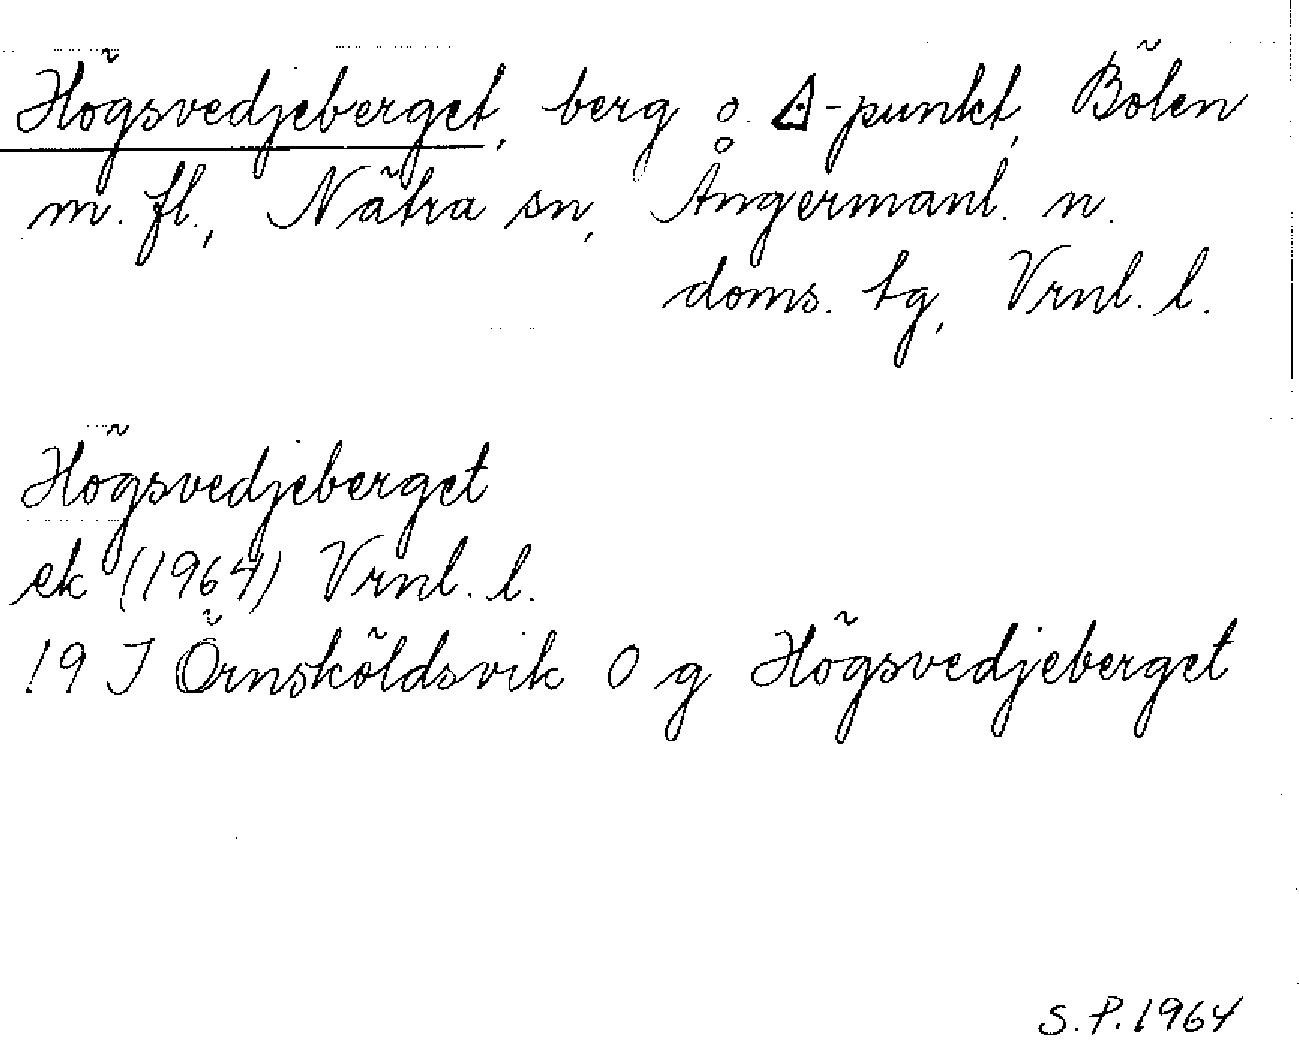 Högsvedjeberget, berg o. △-punkt, Bölen
m. fl., Nätra sn, Ångermanl. n.
doms. tg, Vrnl. l.
Högsvedjeberget
ek (1964) Vrnl. l.
19 J Örnsköldsvik O g Högsvedjeberget
S. P. 1964